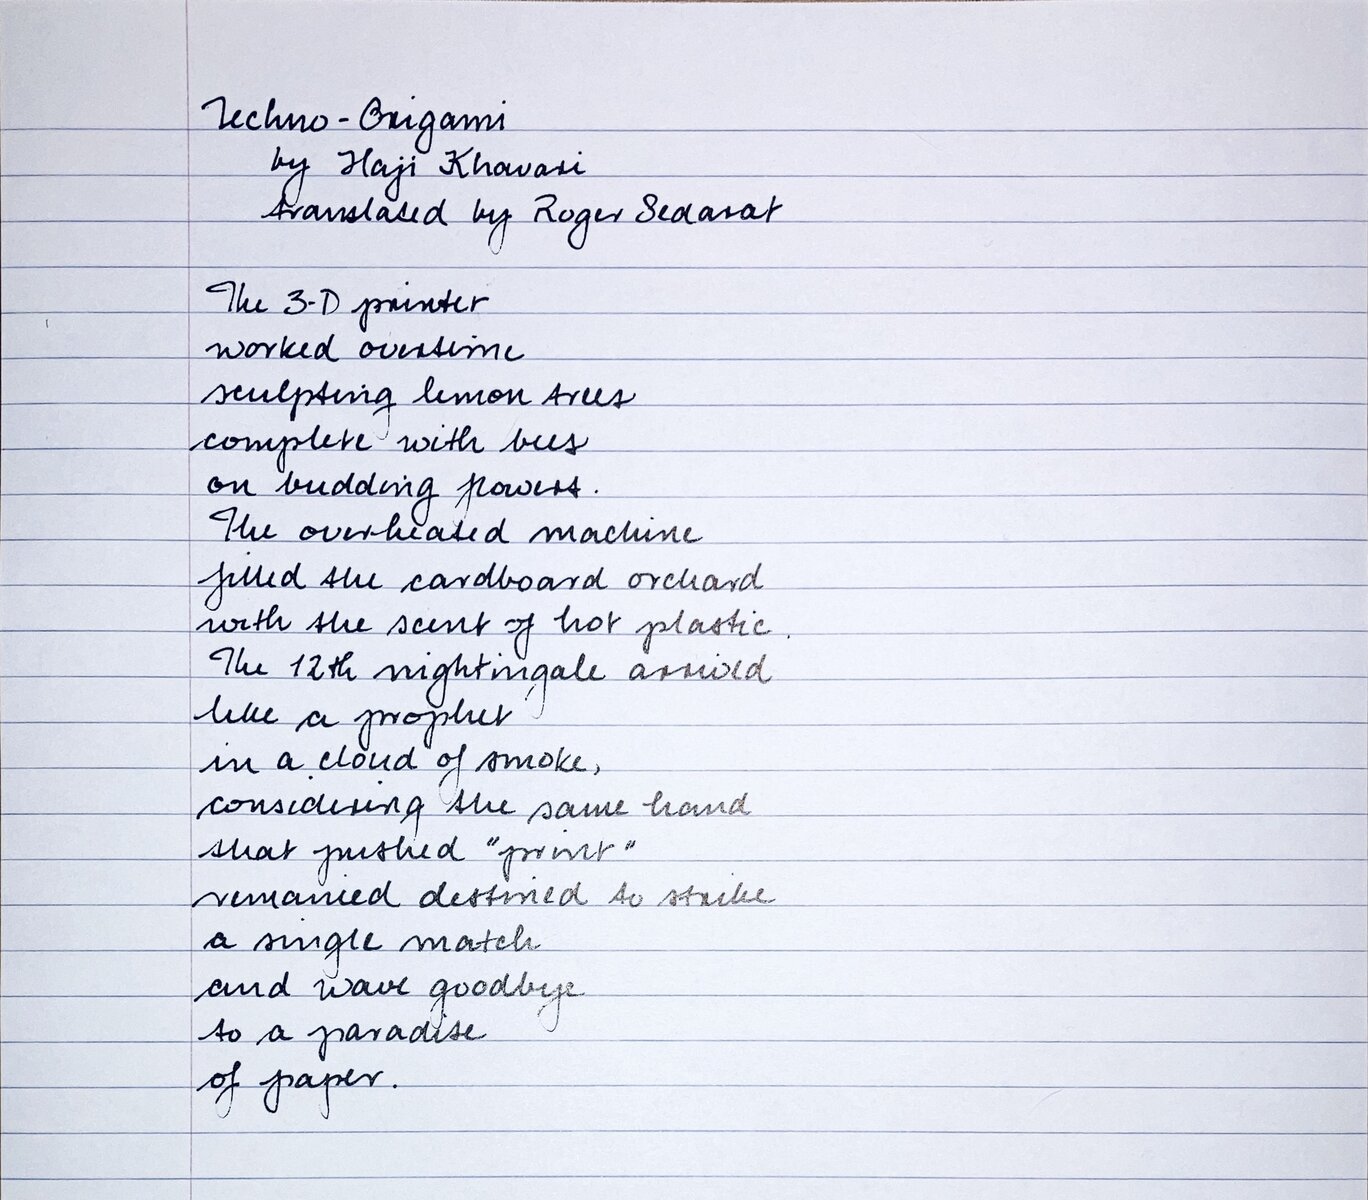 Techno-Origami
by Haji Khavari
translated by Roger Sedarat
The 3-D printer
worked overtime
sculpting lemon trees
complete with bees
on budding flowers.
The overheated machine
filled the cardboard orchard
with the scent of hot plastic.
The 12th nightingale arrived
like a prophet
in a cloud of smoke,
considering the same hand
that pushed "print"
remained destined to strike
a single match
and wave goodbye
to a paradise
of paper.